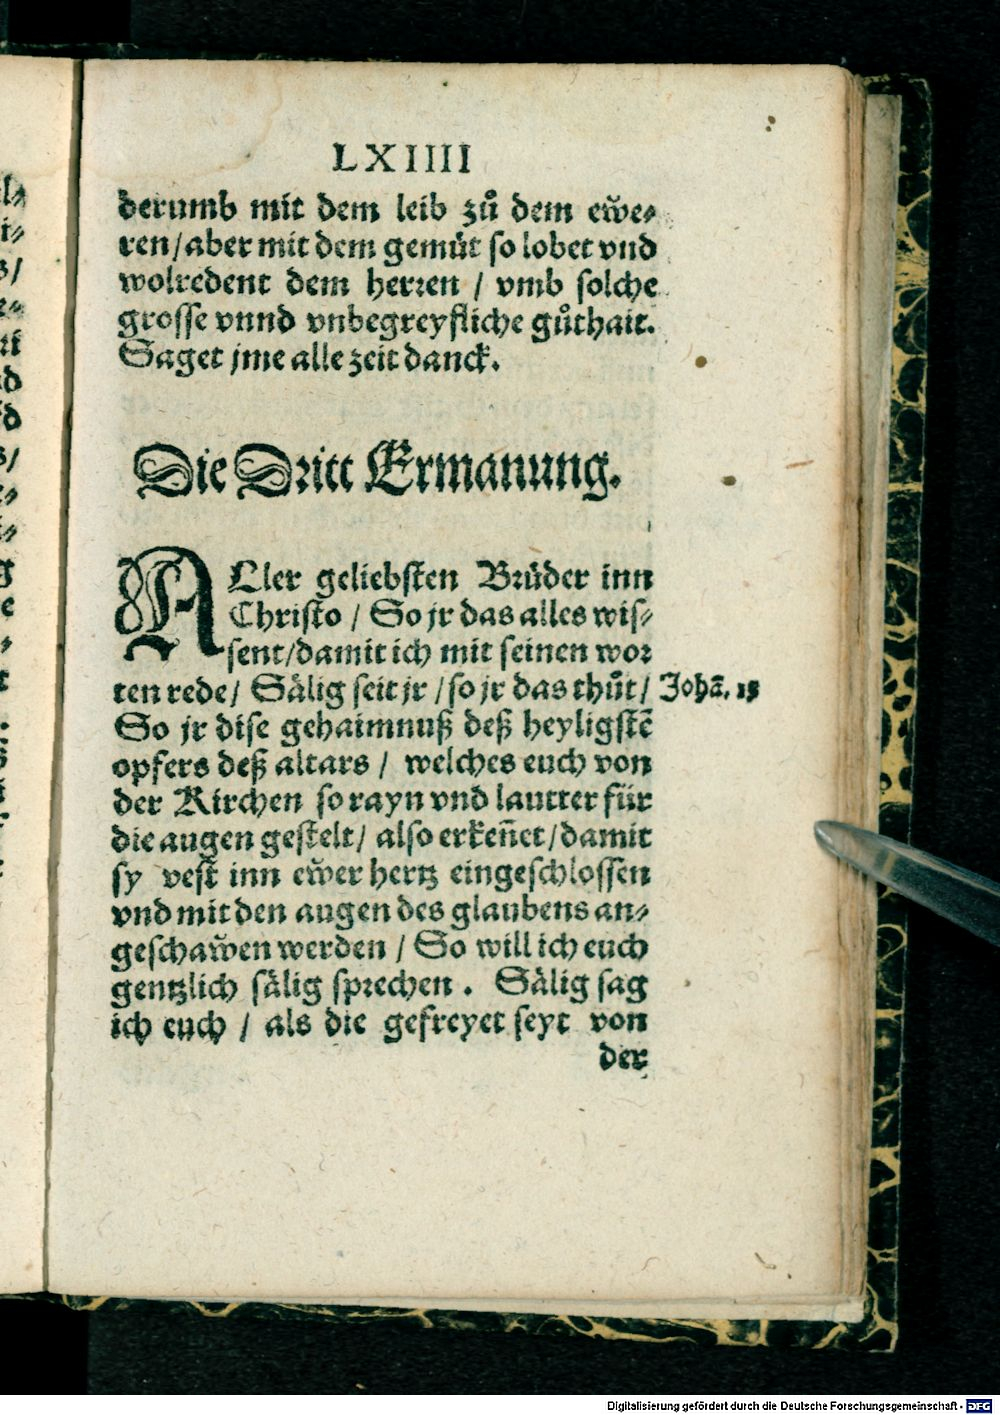 LXIIII
derumb mit dem leib zů dem ew̌e⸗
ren/aber mit dem gemüt so lobet vnd
wolredent dem herren / vmb solche
grosse vnnd vnbegreyfliche gůthait.
Saget jme alle zeit danck.
Die Dritt Ermanung.
ALler geliebsten Brüder inn
Christo / So jr das alles wis⸗
sent/damit ich mit seinen wor
ten rede/ Sälig seit jr /so jr das thůt/ Johā. 13
So jr dise gehaimnuß deß heyligstē
opfers deß altars / welches euch von
der Kirchen so rayn vnd lautter für
die augen gestelt/ also erkeñet/damit
sy vest inn ew̌er hertz eingeschlossen
vnd mit den augen des glaubens an⸗
geschaw̌en werden / So will ich euch
gentzlich sälig sprechen . Sälig sag
ich euch / als die gefreyet seyt von
der
Digitalisierung gefördert durch die Deutsche Forschungsgemeinschaft - DFG